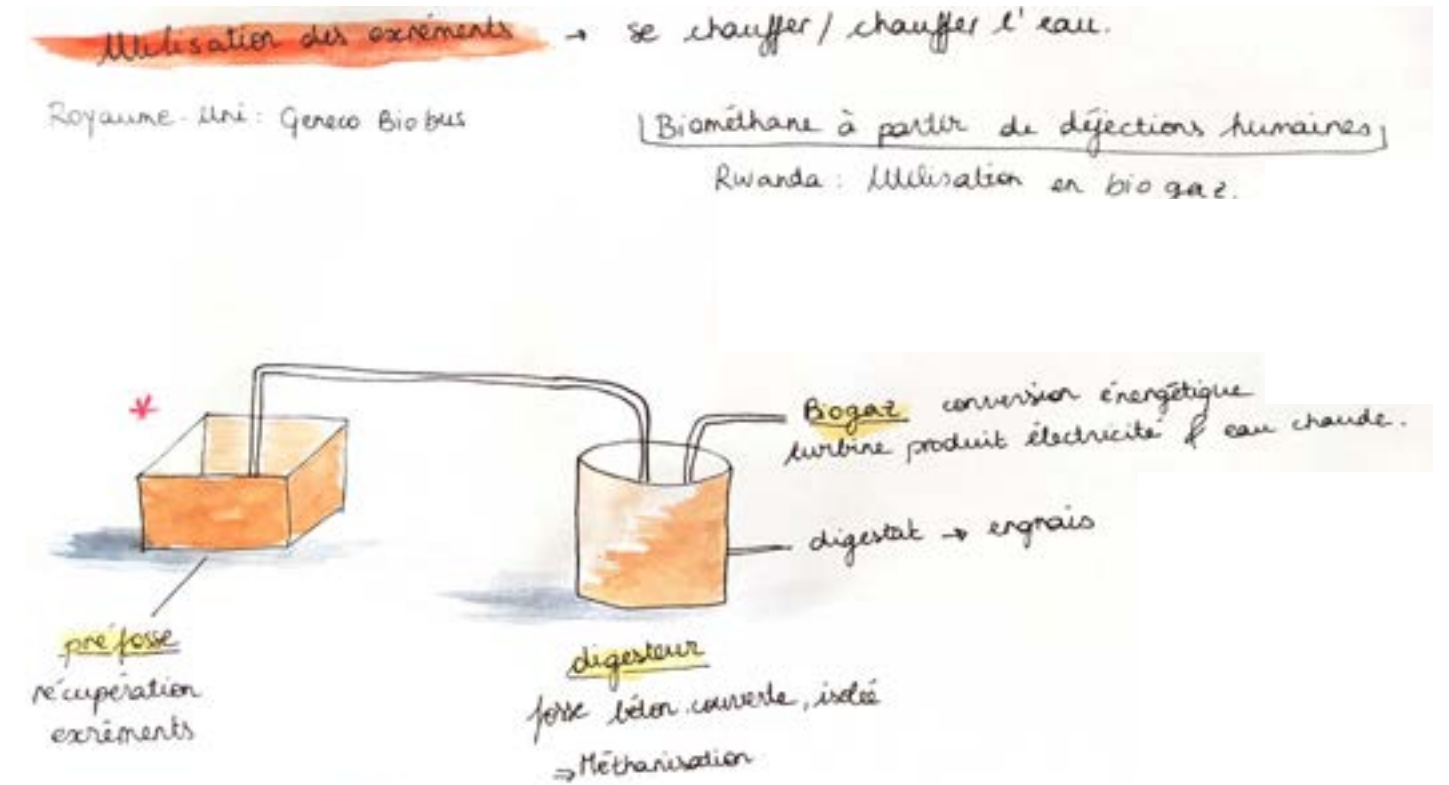 Utilisation des excréments → se chauffer / chauffer l'eau.
Royaume-Uni : Geneco Bio bus
Biométhane à partir de déjections humaines
Rwanda : Utilisation en bio gaz.
*
Biogaz conversion énergétique
turbine produit électricité & eau chaude.
digestat → engrais
pré fosse
récupération
excréments
digesteur
fosse béton couverte, isolée
⇒ Méthanisation